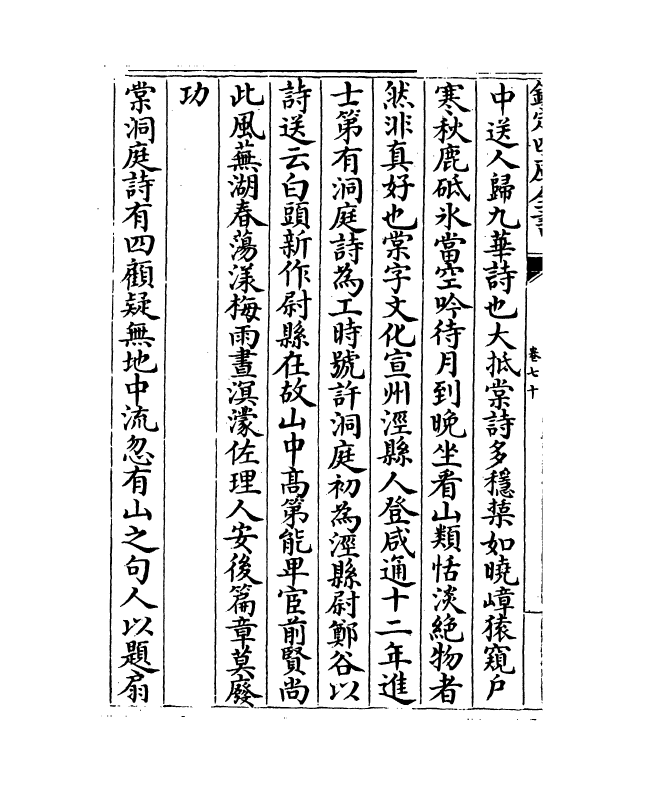 欽定四庫全書
卷七十
中送人歸九華詩也大抵棠詩多穩葉如曉嶂猿窺戶
寒秋鹿砥氷當空吟待月到晚坐看山類恬淡絕物者
然非真好也棠字文化宣州涇縣人登咸通十二年進
士第有洞庭詩為工時號許洞庭初為涇縣尉鄭谷以
詩送云白頭新作尉縣在故山中髙第能卑宦前賢尚
此風蕪湖春蕩漾梅雨晝溟濛佐理人安後篇章莫廢
功
棠洞庭詩有四顧疑無地中流忽有山之句人以題扇